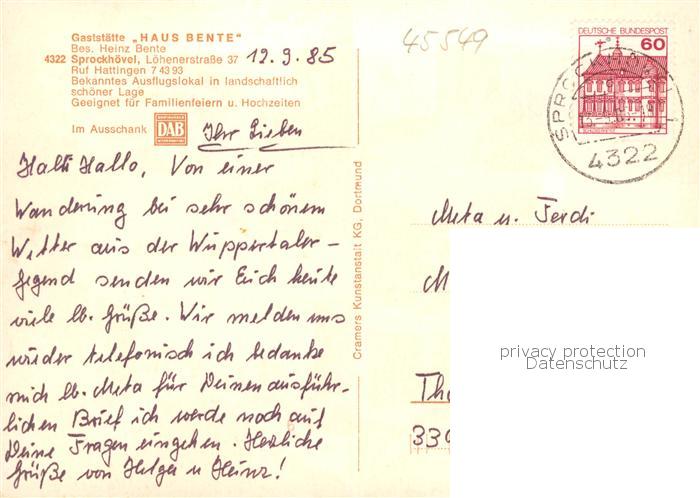 Gaststätte „HAUS BENTE"
Bes. Heinz Bente
4322 Sprockhövel, Löhenerstraße 37
Ruf Hattingen 7 43 93
Bekanntes Ausflugslokal in landschaftlich
schöner Lage
Geeignet für Familienfeiern u. Hochzeiten
Im Ausschank DAB
12.9.85
Ihr Lieben
Hallo, Von einer
Wanderung bei sehr schönem
Wetter aus der Wuppertaler-
gegend senden wir Euch heute
viele lb. Grüße. Wir melden uns
wieder telefonisch ich bedanke
mich lb. Meta für Deinen ausführ-
lichen Brief ich werde noch auf
Deine Fragen eingehen. Herzliche
Grüße von Helga u Heinz!
Cramers Kunstanstalt KG, Dortmund
45549
DEUTSCHE BUNDESPOST
60
4322
Meta u. Ferdi
M
Th
330
privacy protection
Datenschutz